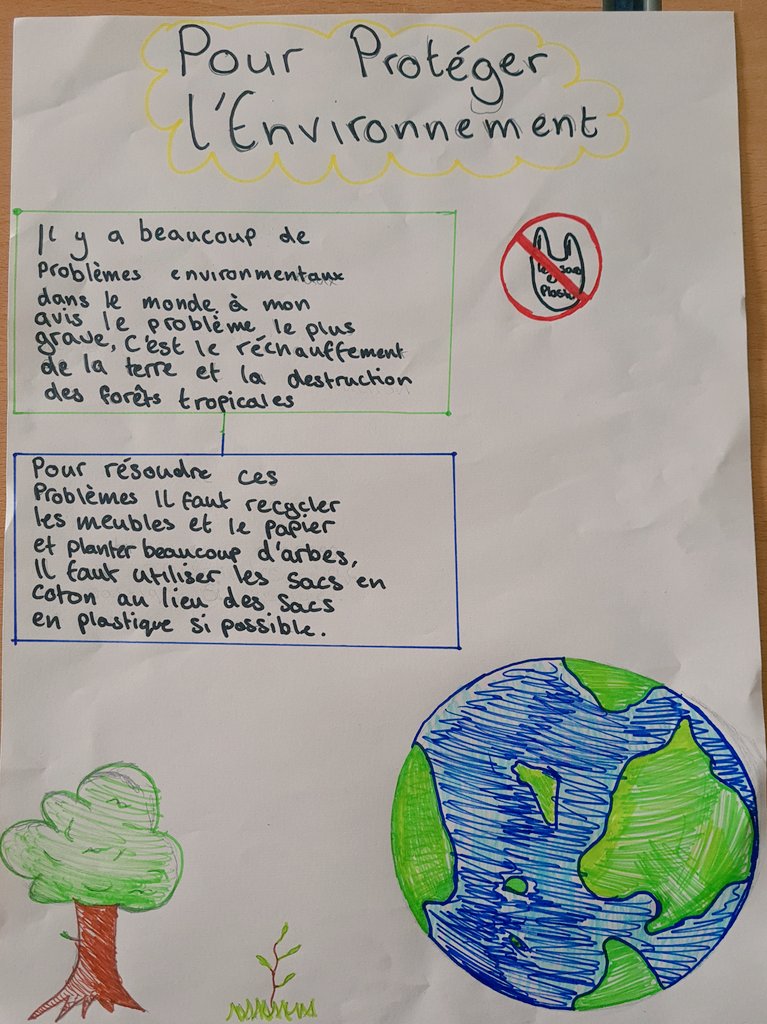 Pour Protéger
l'Environnement
Il y a beaucoup de
Problèmes environmentaux
dans le monde, à mon
avis le problème le plus
grave, C'est le réchauffement
de la terre et la destruction
des forêts tropicales
les sacs
en
Plastic
Pour résoudre ces
Problèmes Il faut recycler
les meubles et le papier
et planter beaucoup d'arbes,
Il faut utiliser les sacs en
coton au lieu des sacs
en plastique si possible.